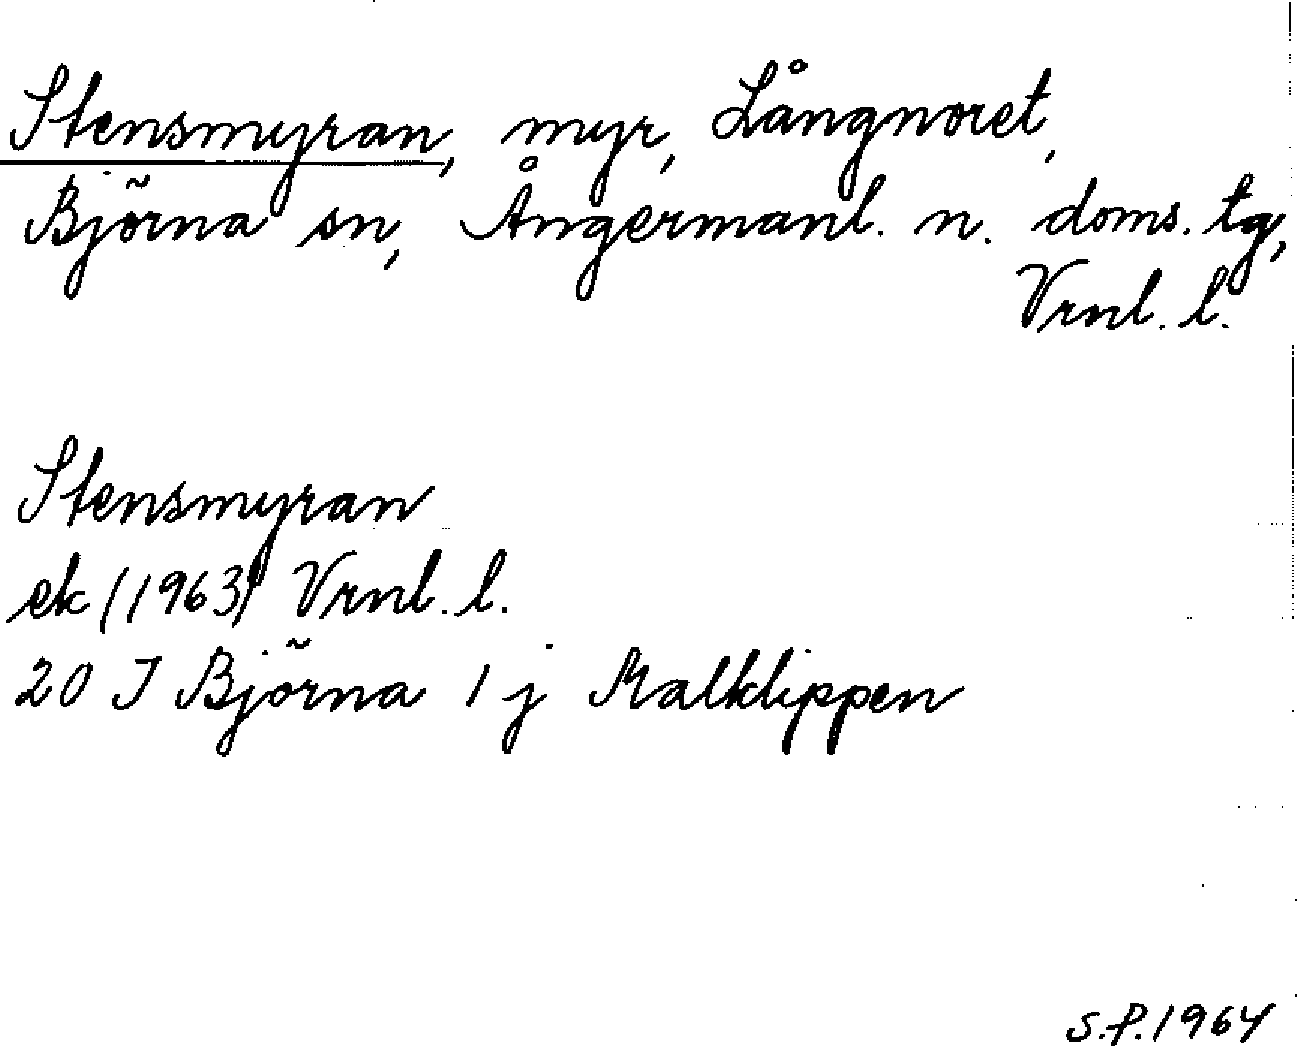 Stensmyran, myr, Långnoret,
Björna sn, Ångermanl. n. doms. tg,
Vrnl. l.
Stensmyran
ek (1963) Vrnl. l.
20 I Björna 1 j Malklippen
S.P. 1964